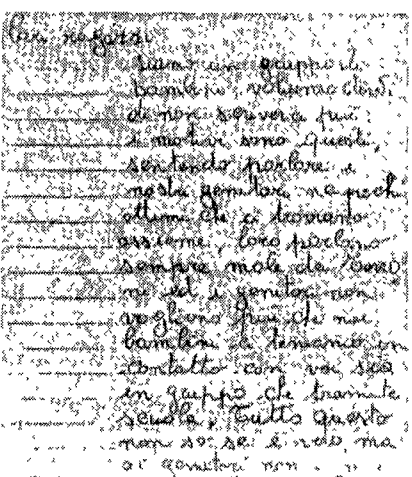 Cari ragazzi
siamo un gruppo di
bambini, vogliamo dirvi
di non scriverci più
i motivi sono questi,
sentendo parlare i
nostri genitori, nei pochi
attimi che ci troviamo
assieme, loro parlano
sempre male de
ni ed i genitori non
vogliono più che noi
bambini ci teniamo in
contatto con voi sia
in gruppo che tramite
scuola, Tutto questo
non so se è vero, ma
ai genitori non